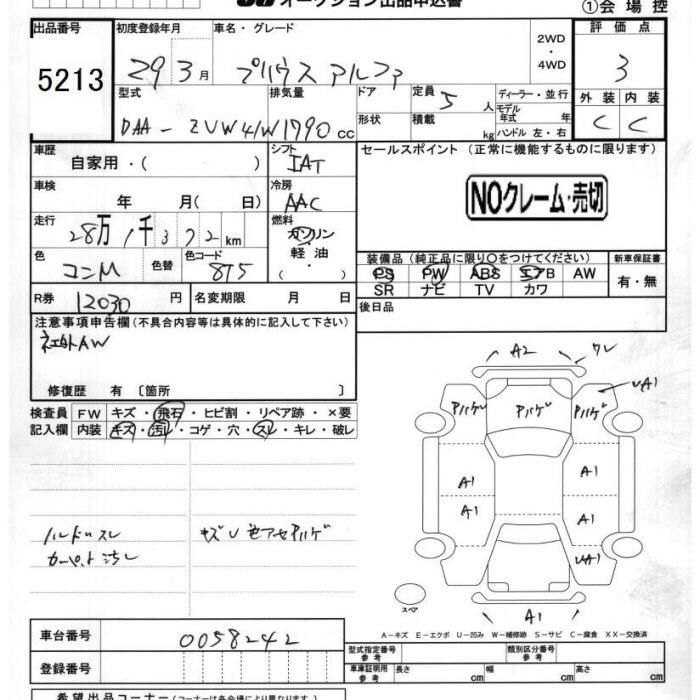 オークション出品申込書
①会場控
出品番号 初度登録年月 車名・グレード 2WD・4WD 評価点
5213 29 3月 プリウス アルファ 3
型式 排気量 ドア 定員 5人 ディーラー・並行 外装 内装
DAA-ZVW41W 1790cc 形状 積載 kg モデル年式 年 ハンドル 左・右 C C
車歴 自家用・( ) シフト IAT セールスポイント (正常に機能するものに限ります)
車検 年 月( 日) 冷房 AAC
NOクレーム・売切
走行 28万1千372km 燃料 ガソリン・軽油・( )
色 コンM 色替 色コード 8T5
装備品 (純正品に限り○をつけてください) 新車保証書
PS PW ABS エアB AW 有・無
SR ナビ TV カワ
R券 12030円 名変期限 月 日 後日品
注意事項申告欄 (不具合内容等は具体的に記入して下さい)
社外AW
修復歴 有 [箇所 ]
検査員記入欄 FW キズ・飛石・ヒビ割・リペア跡・×要
内装 キズ・汚レ・コゲ・穴・スレ・キレ・破レ
A2 ワレ
アパゲ アパゲ アパゲ UA1
A1 A1
A1 A1
UA1
ハンドルスレ
カーペット汚レ
スペア
A1
A-キズ E-エクボ U-凹み W-補修跡 S-サビ C-腐食 XX-交換済
車台番号 0058242
型式指定番号 参考 類別区分番号 参考
登録番号
車庫証明用 参考 長さ cm 幅 cm 高さ cm
希望出品コーナー (コーナーは各会場で異なります)